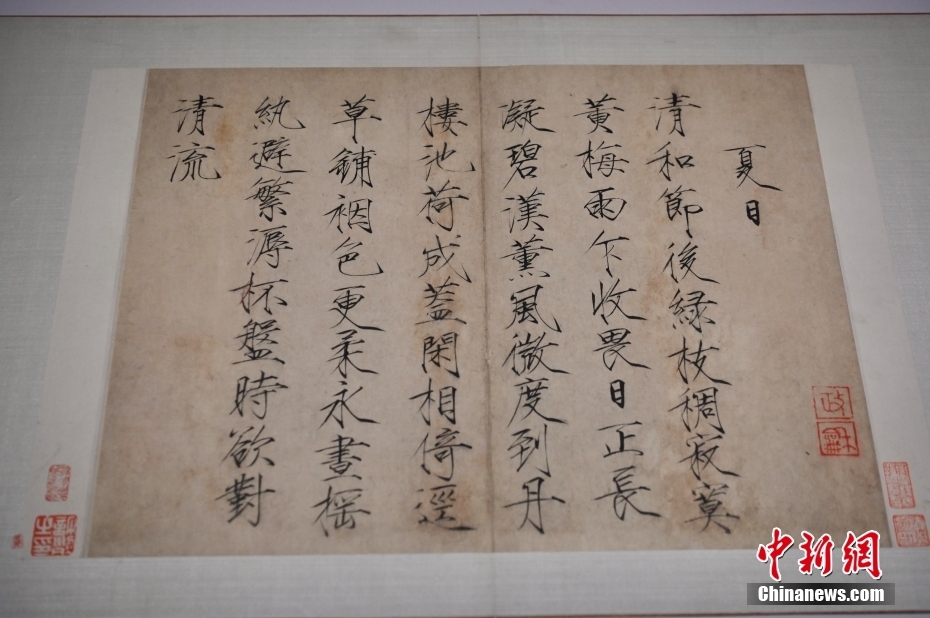 夏日
清和節後綠枝稠寂寞
黃梅雨乍收畏日正長
凝碧漢薰風微度到丹
樓池荷成蓋閑相倚逕
草鋪裀色更柔永晝搖
紈避繁溽杯盤時欲對
清流
政龢
中新网
Chinanews.com